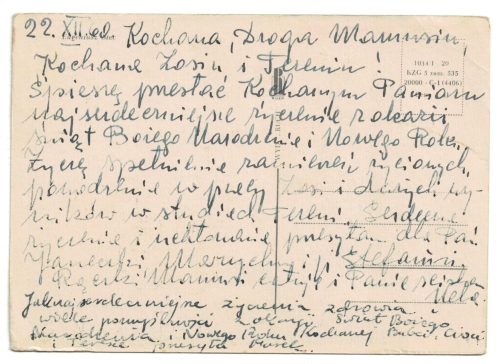 22. XII
Kochana, Droga Mamusiu,
Kochane Zosiu i Tereniu!
Śpieszę przesłać Kochanym Paniom
najserdeczniejsze życzenia z okazji
Świąt Bożego Narodzenia i Nowego Roku.
Życzę spełnienia zamierzeń życiowych,
powodzenia w pracy Zosi i dużych wy-
ników w studiach Tereni. Serdeczne
życzenia i ucałowania przesyłam dla
Stefanii.
Rączki Mamusi całuję i Panie
Hela
Jak najserdeczniejsze życzenia zdrowia i
wszelkiej pomyślności z okazji Świąt Bożego
Narodzenia i Nowego Roku Kochanej Babci, Cioci
i Tereni przesyła
1014 I 20
RZG 3 zam. 535
20000 - C-1 (4406)